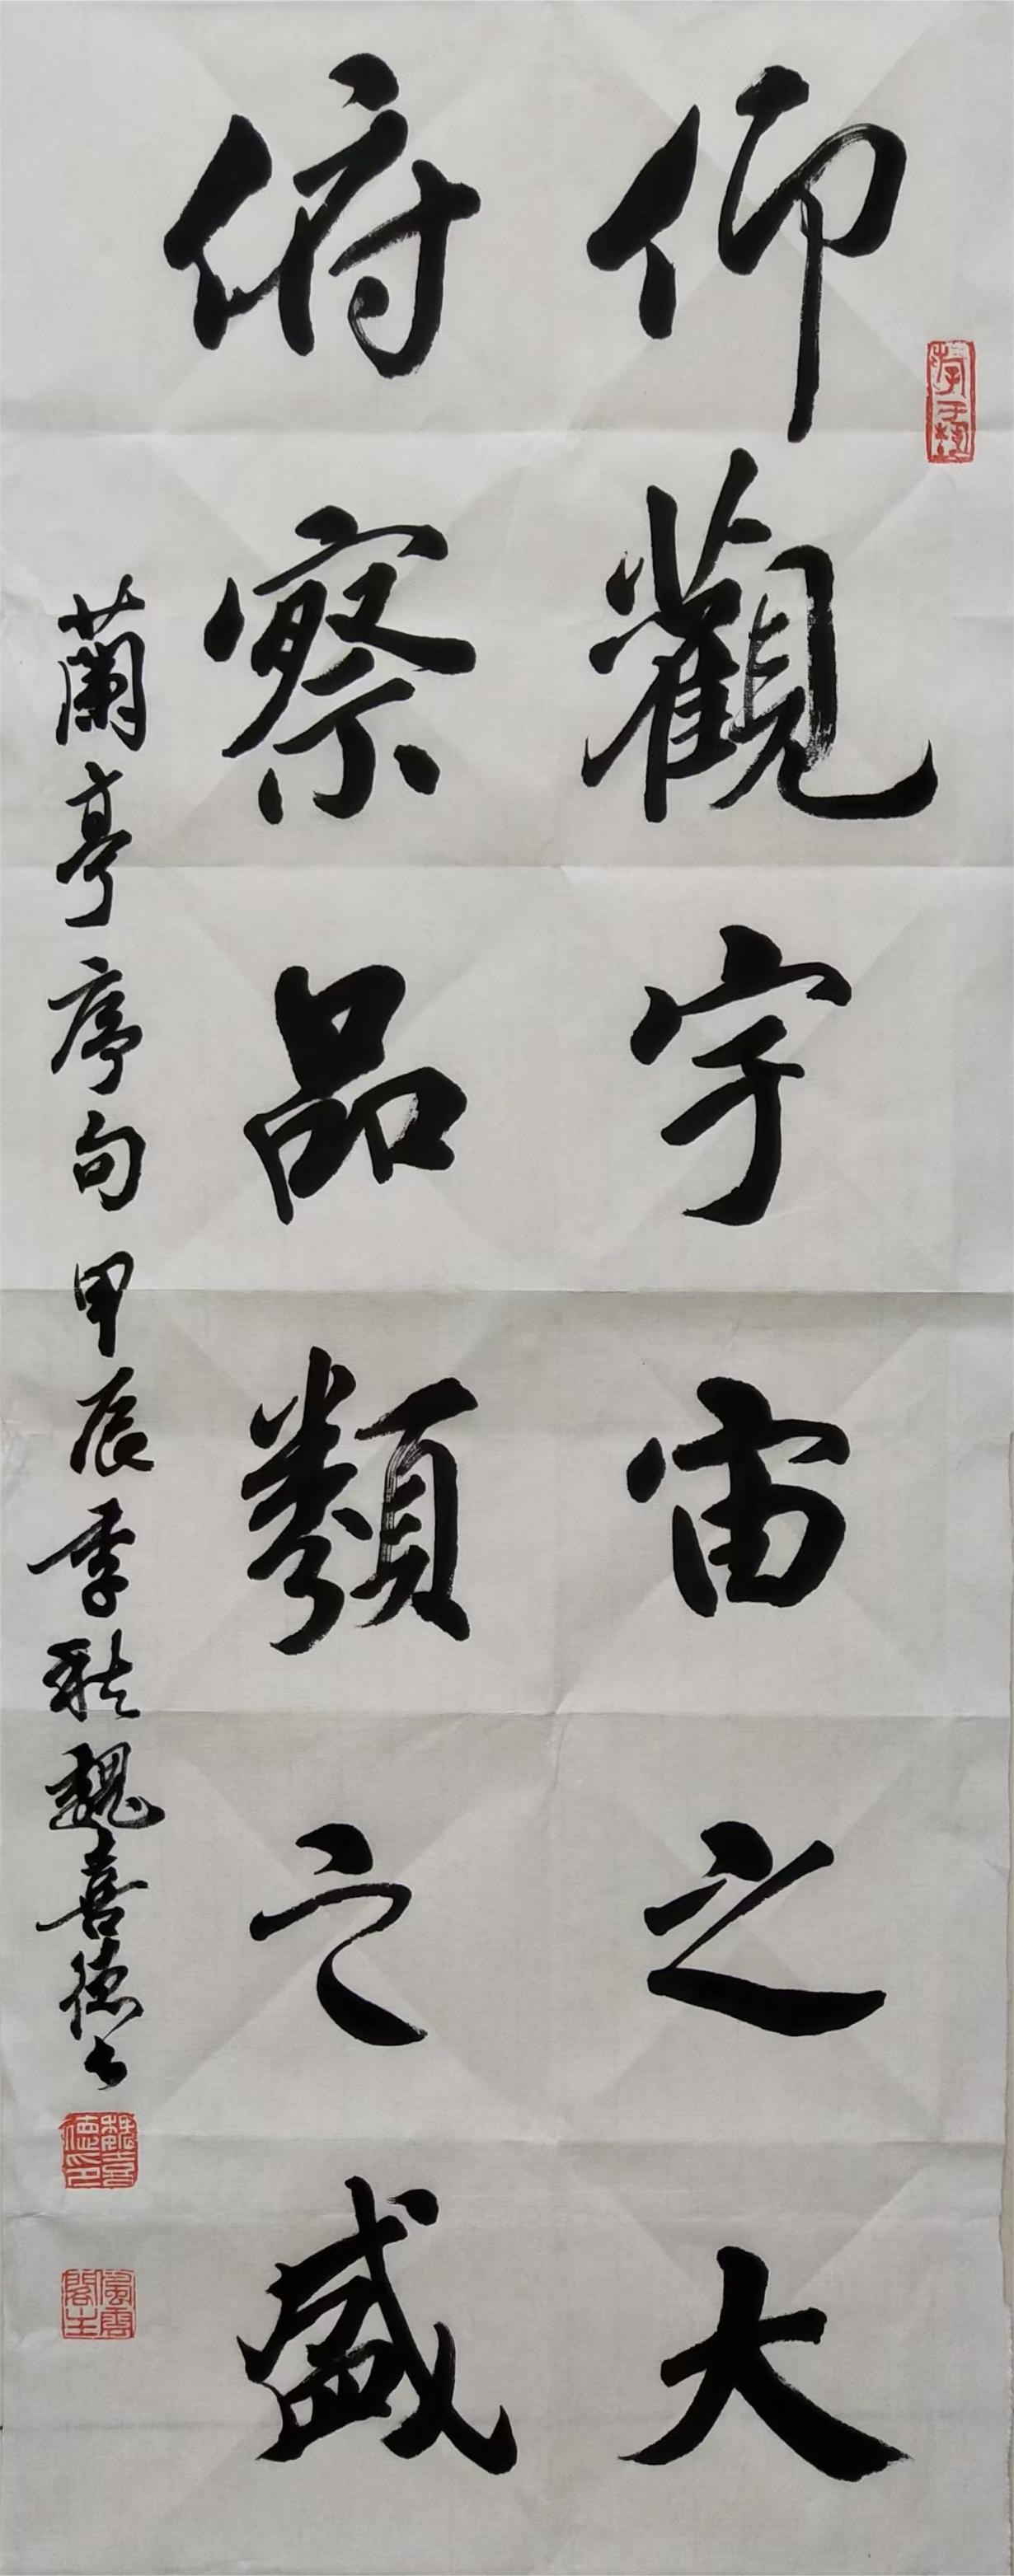 仰觀宇宙之大
俯察品類之盛
蘭亭序句 甲辰季秋魏喜德书
魏喜德印